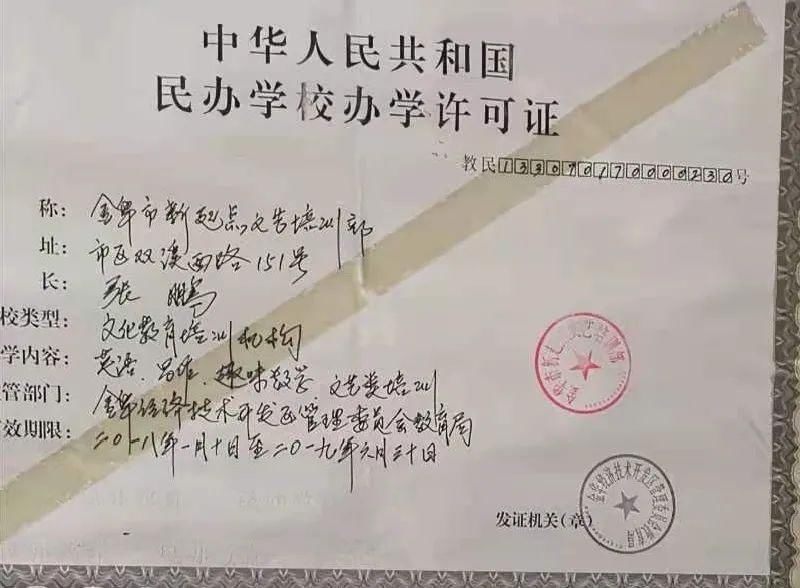 中华人民共和国
民办学校办学许可证
教民133070170000230号
称：金华市新起点文艺培训部
址：市区双溪西路151号
长：张鹏
校类型：文化教育培训机构
学内容：英语、趣味数学 文艺类培训
管部门：金华经济技术开发区管理委员会教育局
效期限：二〇一八年一月十日至二〇一九年六月三十日
发证机关（章）
金华经济技术开发区管理委员会教育局